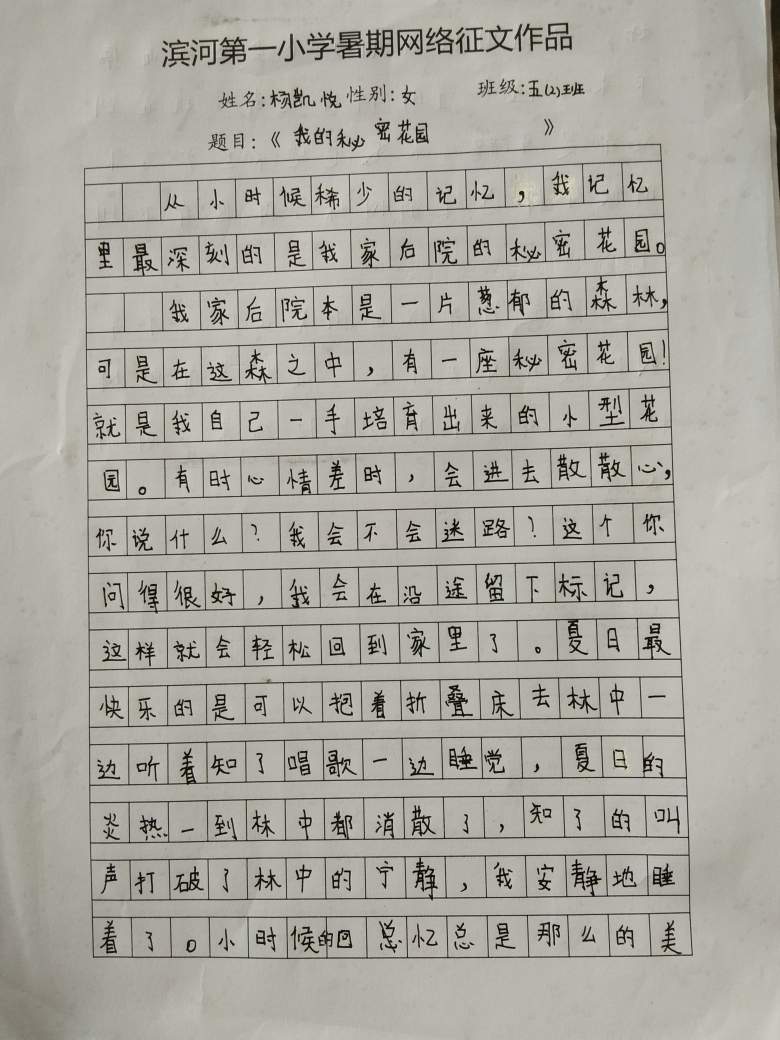 滨河第一小学暑期网络征文作品
姓名:杨凯悦 性别:女 班级:五(2)班
题目:《 我的秘密花园 》
从小时候稀少的记忆,我记忆
里最深刻的是我家后院的秘密花园。
我家后院本是一片葱郁的森林,
可是在这森之中,有一座秘密花园!
就是我自己一手培育出来的小型花
园。有时心情差时,会进去散散心,
你说什么?我会不会迷路?这个你
问得很好,我会在沿途留下标记,
这样就会轻松回到家里了。夏日最
快乐的是可以抱着折叠床去林中一
边听着知了唱歌一边睡觉,夏日的
炎热一到林中都消散了,知了的叫
声打破了林中的宁静,我安静地睡
着了。小时候的回忆总是那么的美